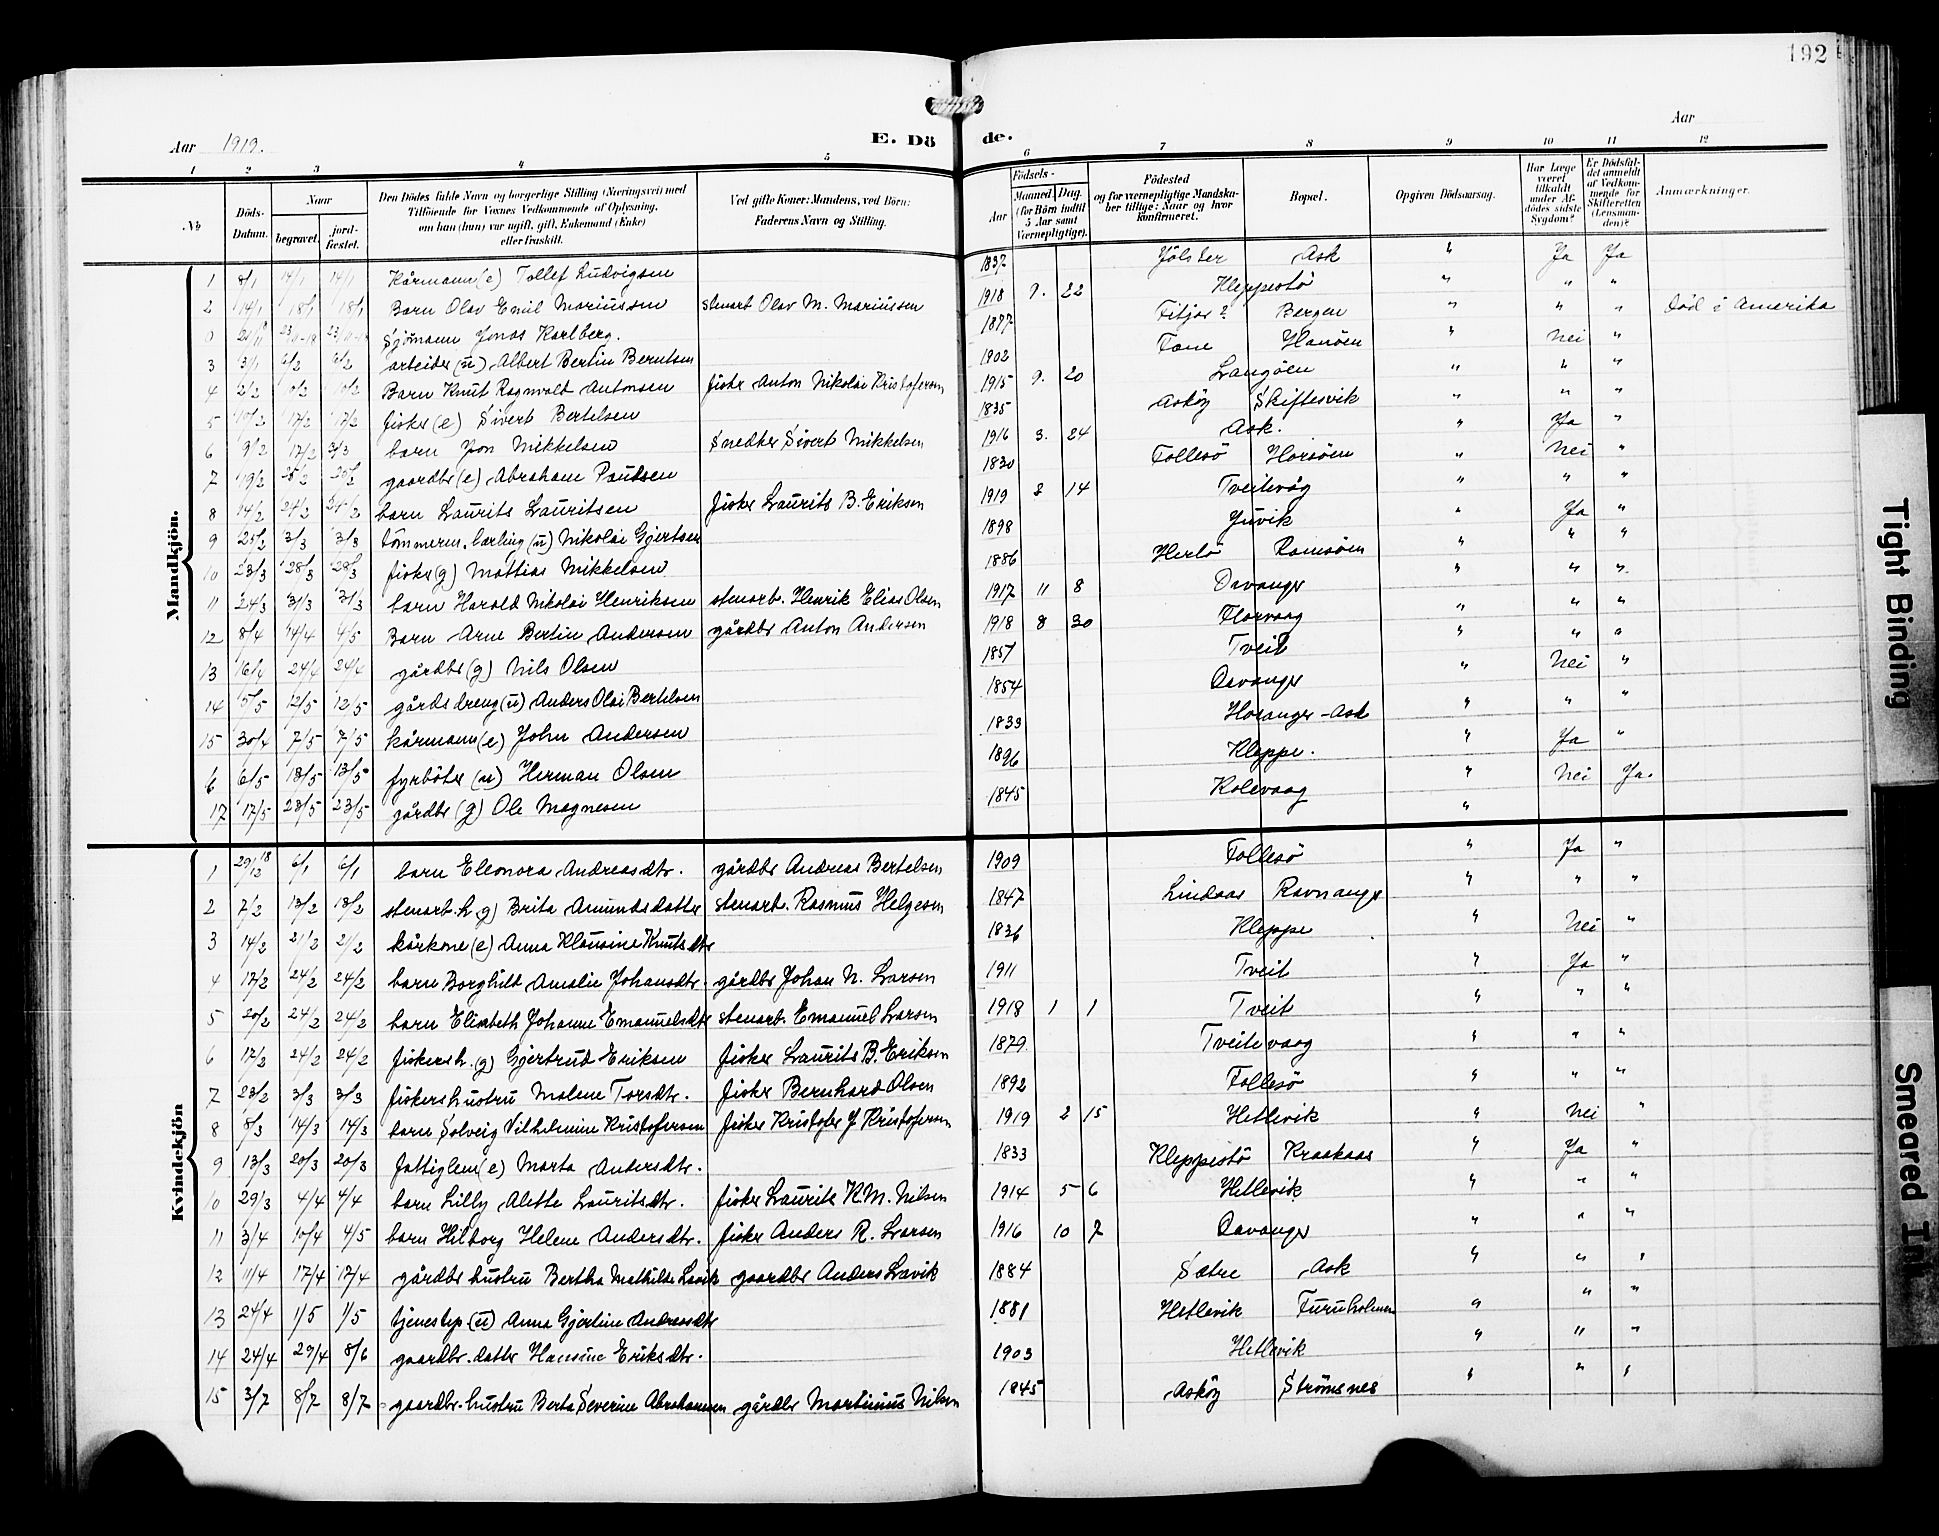 192
Aar 1919.
E. Dö de.
Aar
1 2 3 4 5 6 7 8 9 10 11 12
No
Döds-Datum.
Naar
begravet.
jordfæstet.
Den Dödes fulde Navn og borgerlige Stilling (Næringsvei) med Tilföiende for Voxnes Vedkommende af Oplysning, om han (hun) var ugift, gift, Enkemand (Enke) eller fraskilt.
Ved gifte Koner: Mandens, ved Börn: Faderens Navn og Stilling.
Födsels-
Aar
Maaned. Dag.
(for Börn indtil 5 Aar samt Værnepligtige).
Födested og for værnepligtige Mandskaber tillige: Naar og hvor konfirmeret.
Bopæl.
Opgiven Dödsaarsag.
Har Læge været tilkaldt under Afdödes sidste Sygdom?
Er Dödsfaldet anmeldt af Vedkommende for Skifteretten (Lensmanden)?
Anmærkninger.
Mandkjön.
1 8/1 14/1 14/1 Kårmann (e) Tollef Ludvigsen 1837 Jölster Ask " Ja Ja
2 14/1 18/1 18/1 Barn Olav Emil Mariussen stenarb Olav M. Mariussen 1918 9. 22 Kleppestö " " "
0 23/11-18 23/11-18 Sjömann Jonas Karlberg. 1877 Fitjar? Bergen " " " död i Amerika
3 3/1 6/2 6/2 arbeider (u) Albert Bertin Berntsen 1902 Fane Hanöen " Nei "
4 2/2 10/2 10/2 Barn Knut Ragnvald Antonsen fisker Anton Nikolai Kristofersen 1915 9. 20 Langöen " " "
5 10/2 17/2 17/2 fisker (e) Sivert Bertelsen 1835 Asköy Skiftesvik " " "
6 9/2 17/2 3/3 barn Jon Mikkelsen Snedker Sivert Mikkelsen 1916 3. 24 Ask. " Ja "
7 19/2 25/2 25/2 gaardbr (e) Abraham Paulsen 1830 Follesö Horsöen " Nei "
8 14/2 24/2 24/2 barn Laurits Lauritsen fisker Laurits B. Eriksen 1919 8 14 Tveitevåg " " "
9 25/2 3/3 3/3 tömmerm. lærling (u) Nikolai Gjertsen 1898 Juvik " Ja "
10 23/3 28/3 28/3 fisker (g) Mattias Mikkelsen 1886 Herlö Ramsöen " " "
11 24/3 31/3 31/3 barn Harald Nikolai Henriksen stenarb. Henrik Elias Olsen 1917 11 8 Davanger " " "
12 8/4 14/4 4/5 Barn Arne Bertin Andersen gårdbr Anton Andersen 1918 8 30 Florvaag " " "
13 16/4 24/4 24/4 gårdbr (g) Nils Olsen 1857 Tveit " " "
14 5/5 12/5 12/5 gårdsdreng (u) Anders Olai Bertelsen 1854 Davanger " Nei "
15 30/4 7/5 7/5 kårmann (e) John Andersen 1833 Horanger - Ask " " "
6 6/5 13/5 13/5 fyrböter (u) Herman Olsen 1896 Kleppe. " Ja "
17 17/5 23/5 23/5 gårdbr (g) Ole Magnesen 1845 Kolevaag " Nei Ja.
Kvindekjön
1 29/12 18 6/1 6/1 barn Eleonora Andreasdtr. gårdbr Andreas Bertelsen 1909 Follesö " Ja "
2 7/2 13/2 13/2 stenarb. h. (g) Brita Amundsdatter stenarb. Rasmus Helgesen 1847 Lindaas Ravnanger " " "
3 14/2 21/2 21/2 kårkone (e) Anna Klausine Knutsdtr 1836 Kleppe " Nei "
4 17/2 24/2 24/2 barn Borghild Amalie Johansdtr. gårdbr Johan N. Larsen 1911 Tveit " Ja "
5 20/2 24/2 24/2 barn Elisabeth Johanne Emanuelsdtr stenarb. Emanuel Larsen 1918 1 1 Tveit " " "
6 17/2 24/2 24/2 fiskersh. (g) Gjertrud Eriksen fisker Laurits B. Eriksen 1879. Tveitevaag " " "
7 23/2 3/3 3/3 fiskershustru Malene Torsdtr. fisker Bernhard Olsen 1892 Follesö " " "
8 8/3 14/3 14/3 barn Solveig Vilhelmine Kristofersen fisker Kristofer J Kristofersen 1919 2 15 Hetlevik " Nei "
9 13/3 20/3 20/3 fattiglem (e) Marta Andersdtr. 1833 Kleppestö Kraakaas " Ja "
10 29/3 4/4 4/4 barn Lilly Alette Lauritsdtr. fisker Laurits K.M. Nilsen 1914 5 6 Hetlevik " " "
11 3/4 10/4 4/5 barn Hilborg Helene Andersdtr. fisker Anders R. Larsen 1916 10 7 Davanger " " "
12 11/4 17/4 17/4 gårdbr hustru Bertha Mathilde Lavik gaardbr Anders Lavik 1884 Sætre Ask " " "
13 24/4 1/5 1/5 tjenestep (u) Anna Gjertine Andreasdtr 1881 Hetlevik Furuholmen " " "
14 24/4 29/4 8/6 gaardbr. datter Hansine Eriksdtr. 1903 Hetlevik " " "
15 3/7 8/7 8/7 gaardbr. hustru Berta Severine Abrahamsen gårdbr Martinius Nilsen 1845 Asköy Strömsnes " " "
Tight Binding
Smeared Ink